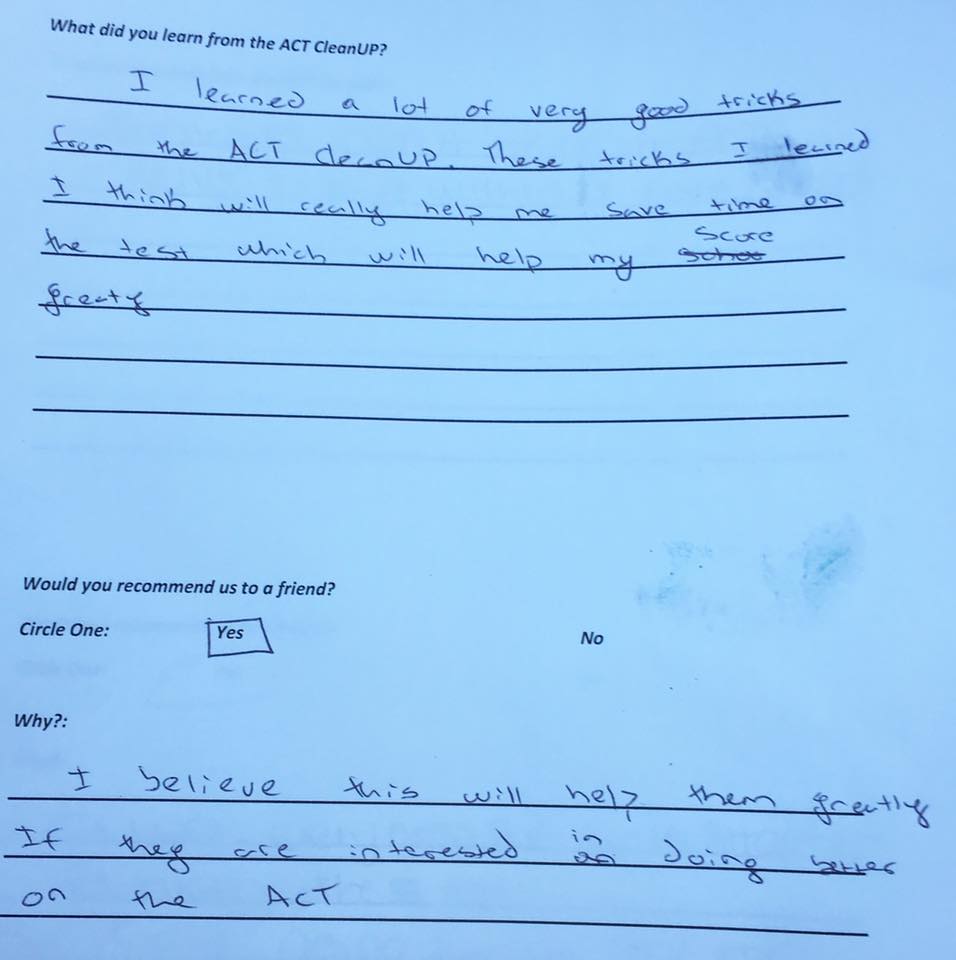 What did you learn from the ACT CleanUP?
I learned a lot of very good tricks
from the ACT CleanUP. These tricks I learned
I think will really help me save time on
Score
the test which will help my schoo
greatly
Would you recommend us to a friend?
Circle One: Yes No
Why?:
I believe this will help them greatly
in
If they are interested on doing better
on the ACT